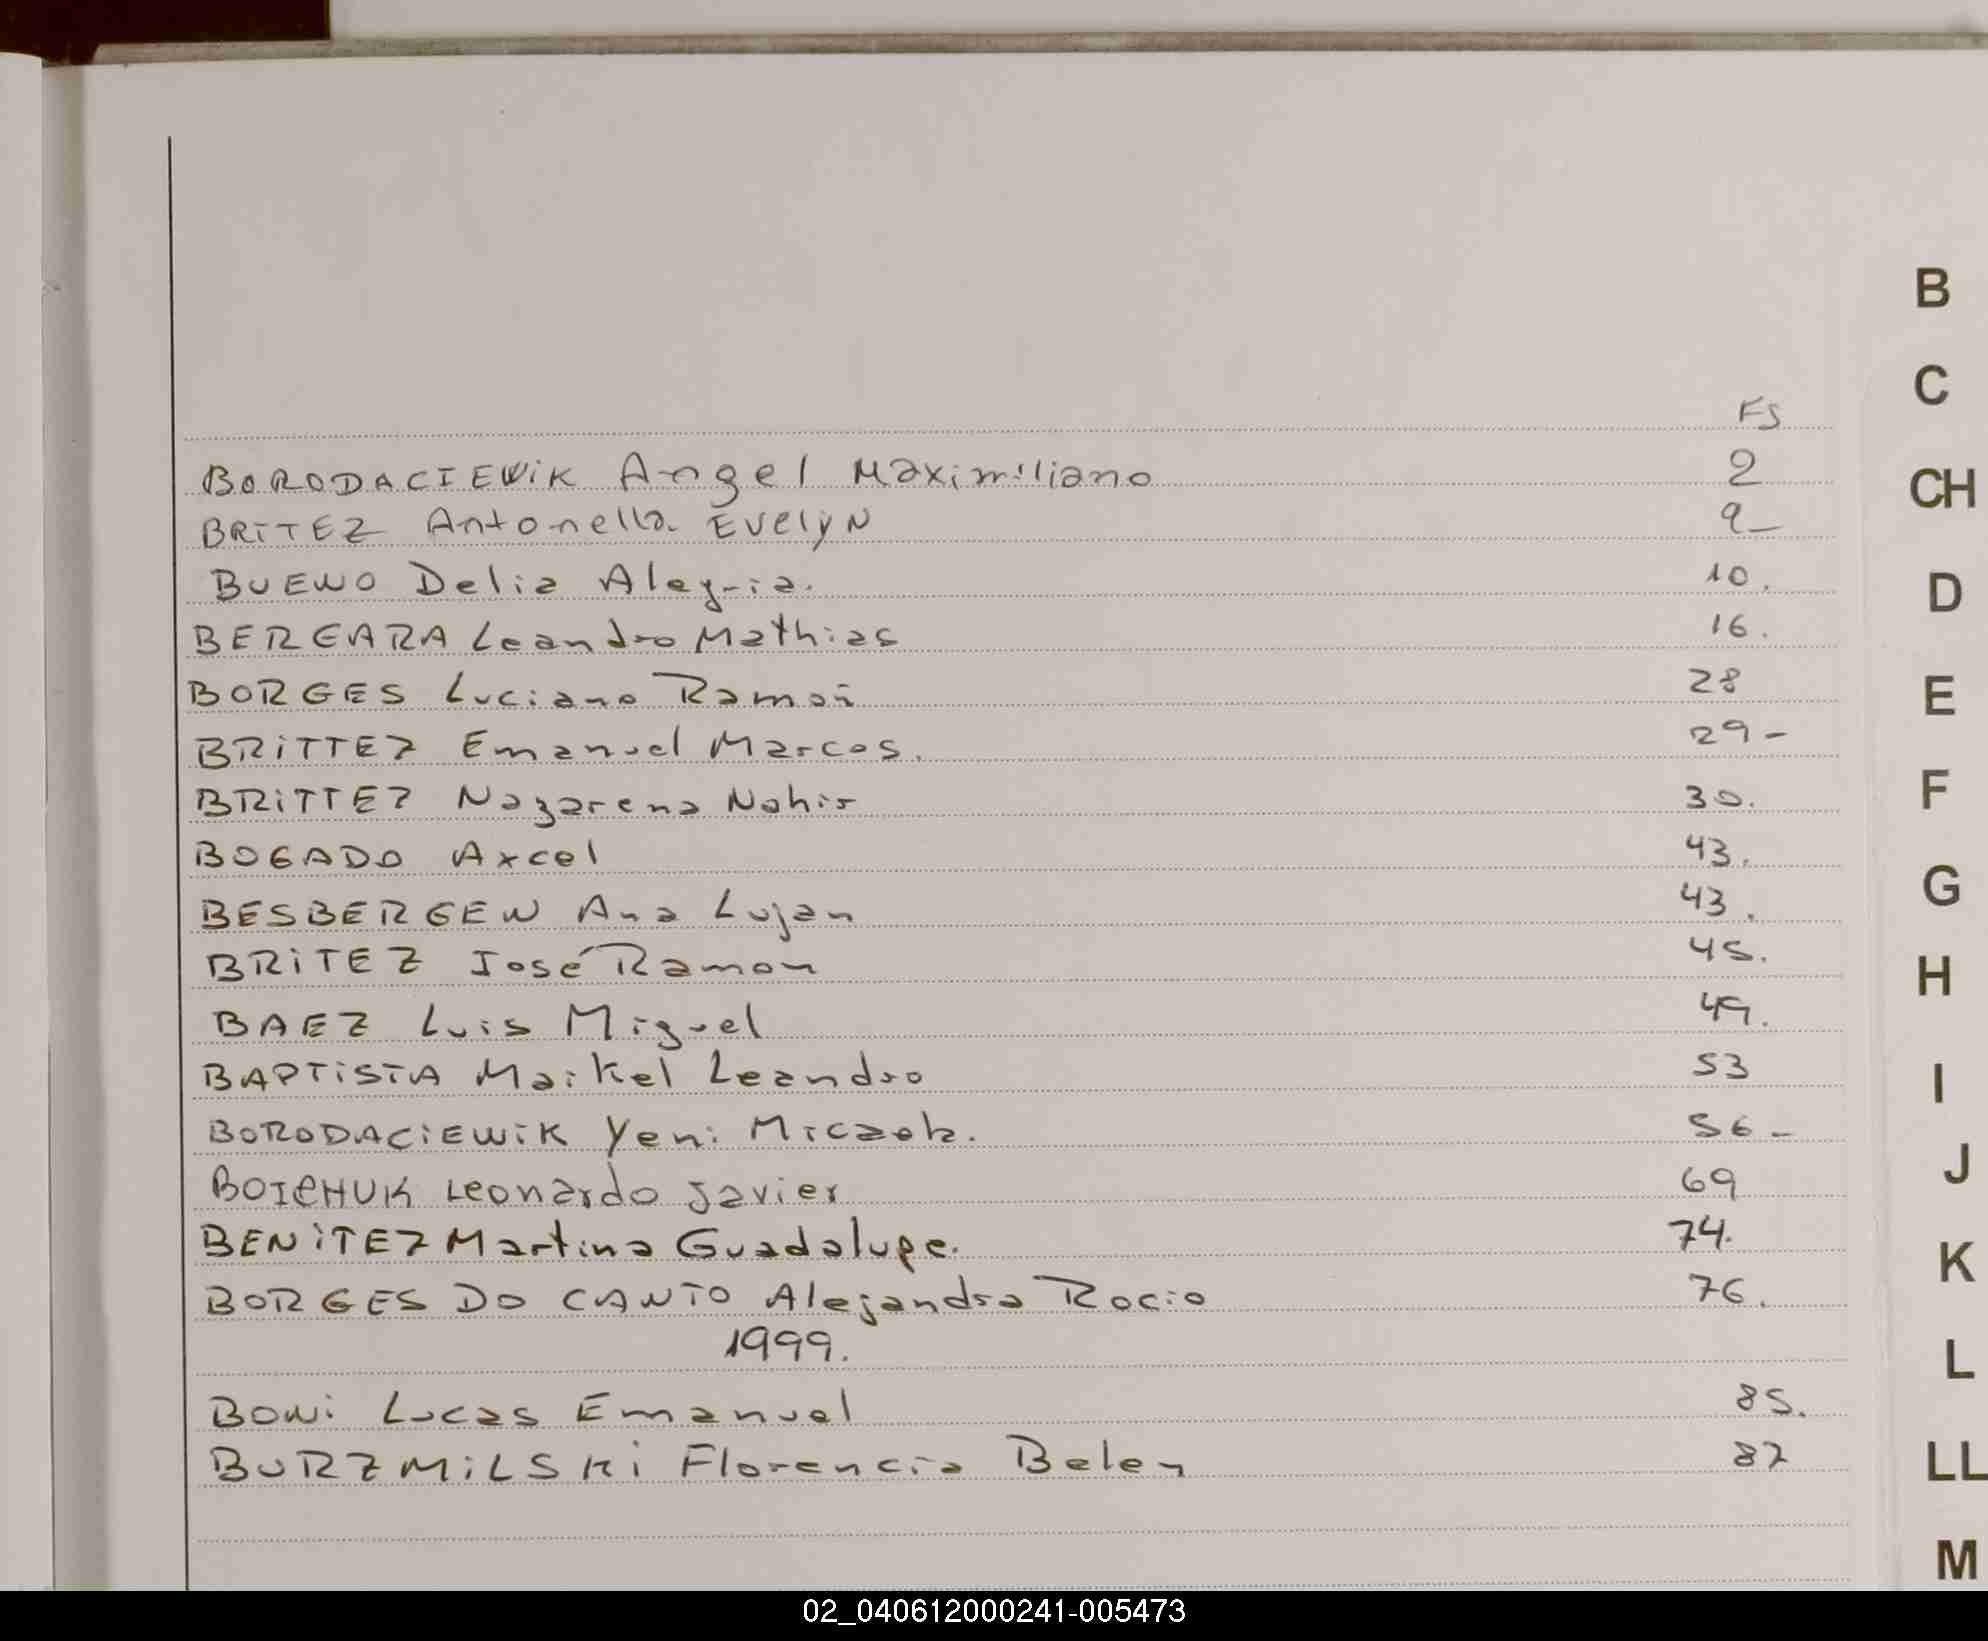 FS
BORODACIEWIK Angel Maximiliano 2
BRITEZ Antonella Evelyn 9-
BUENO Delia Alegria. 10.
BERGARA Leandro Mathias 16.
BORGES Luciano Ramon 28
BRITTEZ Emanuel Marcos. 29-
BRITTEZ Nazarena Nahir 30.
BOGADO Axcel 43.
BESBERGEN Ana Lujan 43.
BRITEZ José Ramon 45.
BAEZ Luis Miguel 49.
BAPTISTA Maikel Leandro 53
BORODACIEWIK Yeni 56-
BOICHUK Leonardo Javier 69
BENITEZ Martina Guadalupe. 74.
BORGES DO CANTO Alejandra Rocio 76.
1999.
BONi Lucas Emanuel 85.
BURZMILSKI Florencia Belen 87
B
C
CH
D
E
F
G
H
I
J
K
L
LL
M
02_040612000241-005473